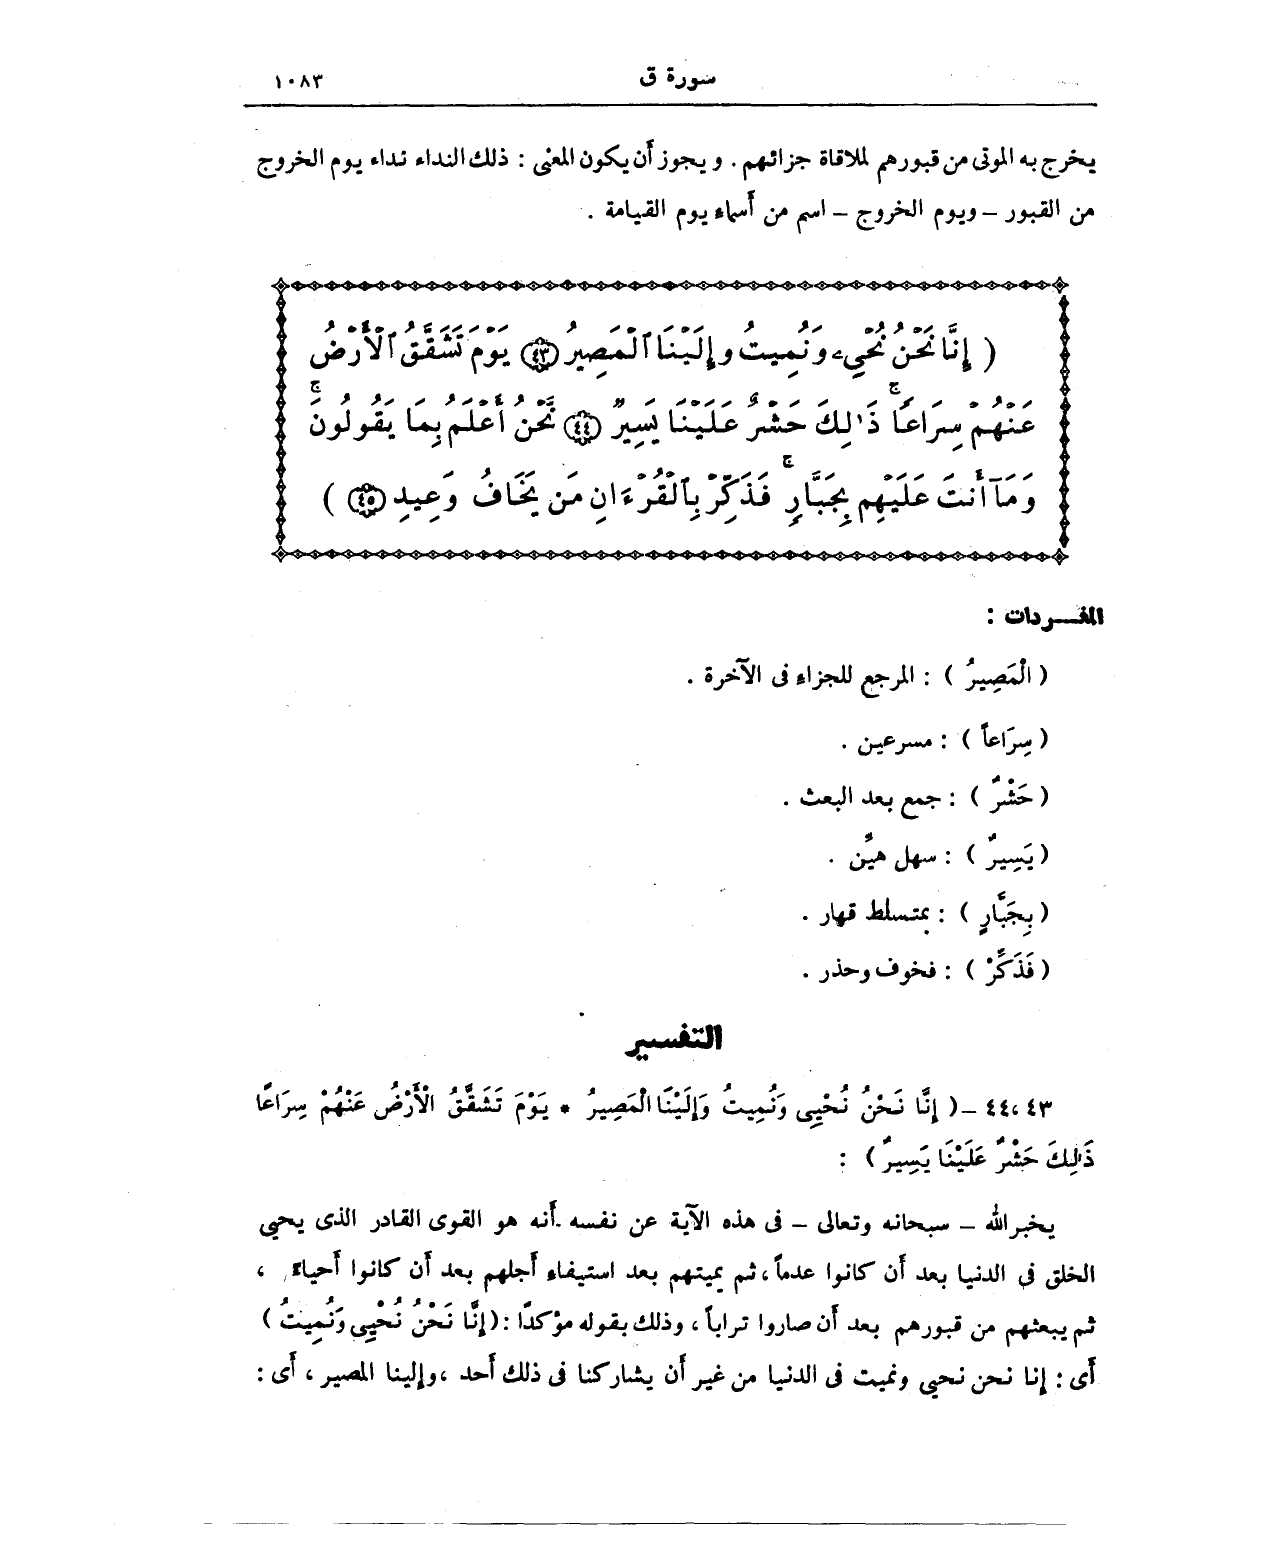 سورة ق ١٠٨٣
يخرج به الموتى من قبورهم لملاقاة جزائهم . ويجوز أن يكون المعنى : ذلك النداء نداء يوم الخروج
من القبور – ويوم الخروج – اسم من أسماء يوم القيامة .
( إِنَّا نَحْنُ نُحْيِۦ وَنُمِيتُ وَإِلَيْنَا ٱلْمَصِيرُ ﴿٤٣﴾ يَوْمَ تَشَقَّقُ ٱلْأَرْضُ
عَنْهُمْ سِرَاعًا ۚ ذَٰلِكَ حَشْرٌ عَلَيْنَا يَسِيرٌ ﴿٤٤﴾ نَّحْنُ أَعْلَمُ بِمَا يَقُولُونَ ۚ
وَمَآ أَنتَ عَلَيْهِم بِجَبَّارٍ ۚ فَذَكِّرْ بِٱلْقُرْءَانِ مَن يَخَافُ وَعِيدِ ﴿٤٥﴾ )
المفـــردات :
( الْمَصِيرُ ) : المرجع للجزاء فى الآخرة .
( سِرَاعاً ) : مسرعين .
( حَشْرٌ ) : جمع بعد البعث .
( يَسِيرٌ ) : سهل هيِّن .
( بِجَبَّارٍ ) : بمتسلط قهار .
( فَذَكِّرْ ) : فخوف وحذر .
التفسير
٤٣ ، ٤٤ – ( إِنَّا نَحْنُ نُحْيِى وَنُمِيتُ وَإِلَيْنَا الْمَصِيرُ * يَوْمَ تَشَقَّقُ الْأَرْضُ عَنْهُمْ سِرَاعًا
ذَٰلِكَ حَشْرٌ عَلَيْنَا يَسِيرٌ ) :
يخبر الله – سبحانه وتعالى – فى هذه الآية عن نفسه أنه هو القوى القادر الذى يحيى
الخلق فى الدنيا بعد أن كانوا عدماً ، ثم يميتهم بعد استيفاء أجلهم بعد أن كانوا أحياءً ،
ثم يبعثهم من قبورهم بعد أن صاروا تراباً ، وذلك بقوله مؤكدًا : ( إِنَّا نَحْنُ نُحْيِى وَنُمِيتُ )
أى : إنا نحن نحيى ونميت فى الدنيا من غير أن يشاركنا فى ذلك أحد ، وإلينا المصير ، أى :